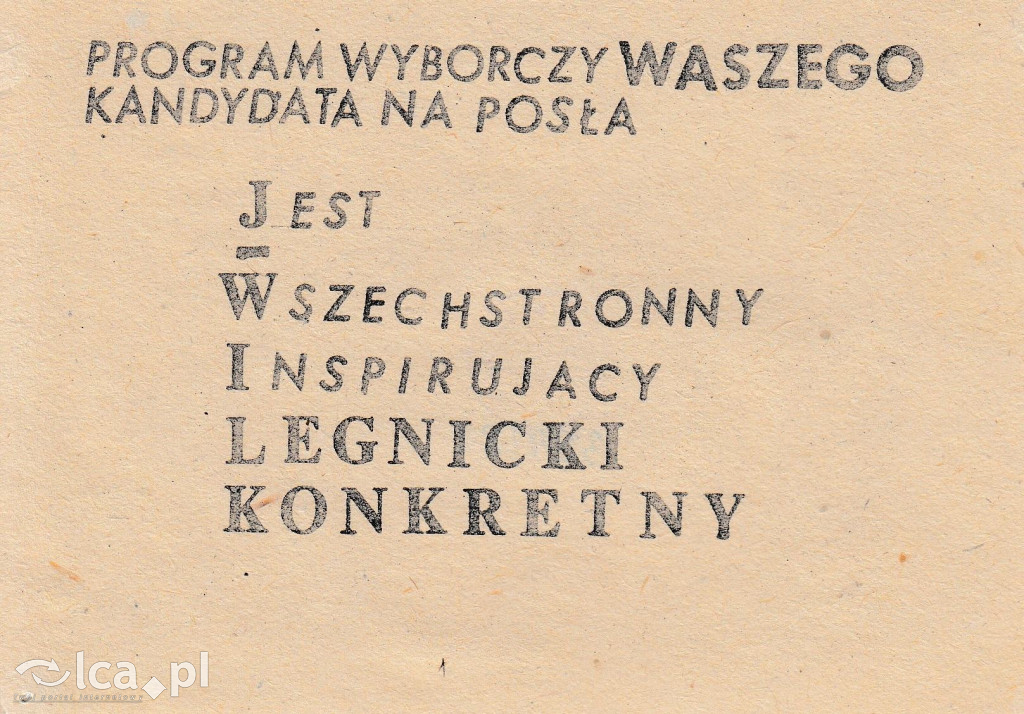 PROGRAM WYBORCZY WASZEGO
KANDYDATA NA POSŁA
JEST
WSZECHSTRONNY
INSPIRUJACY
LEGNICKI
KONKRETNY
lca.pl
twój portal internetowy